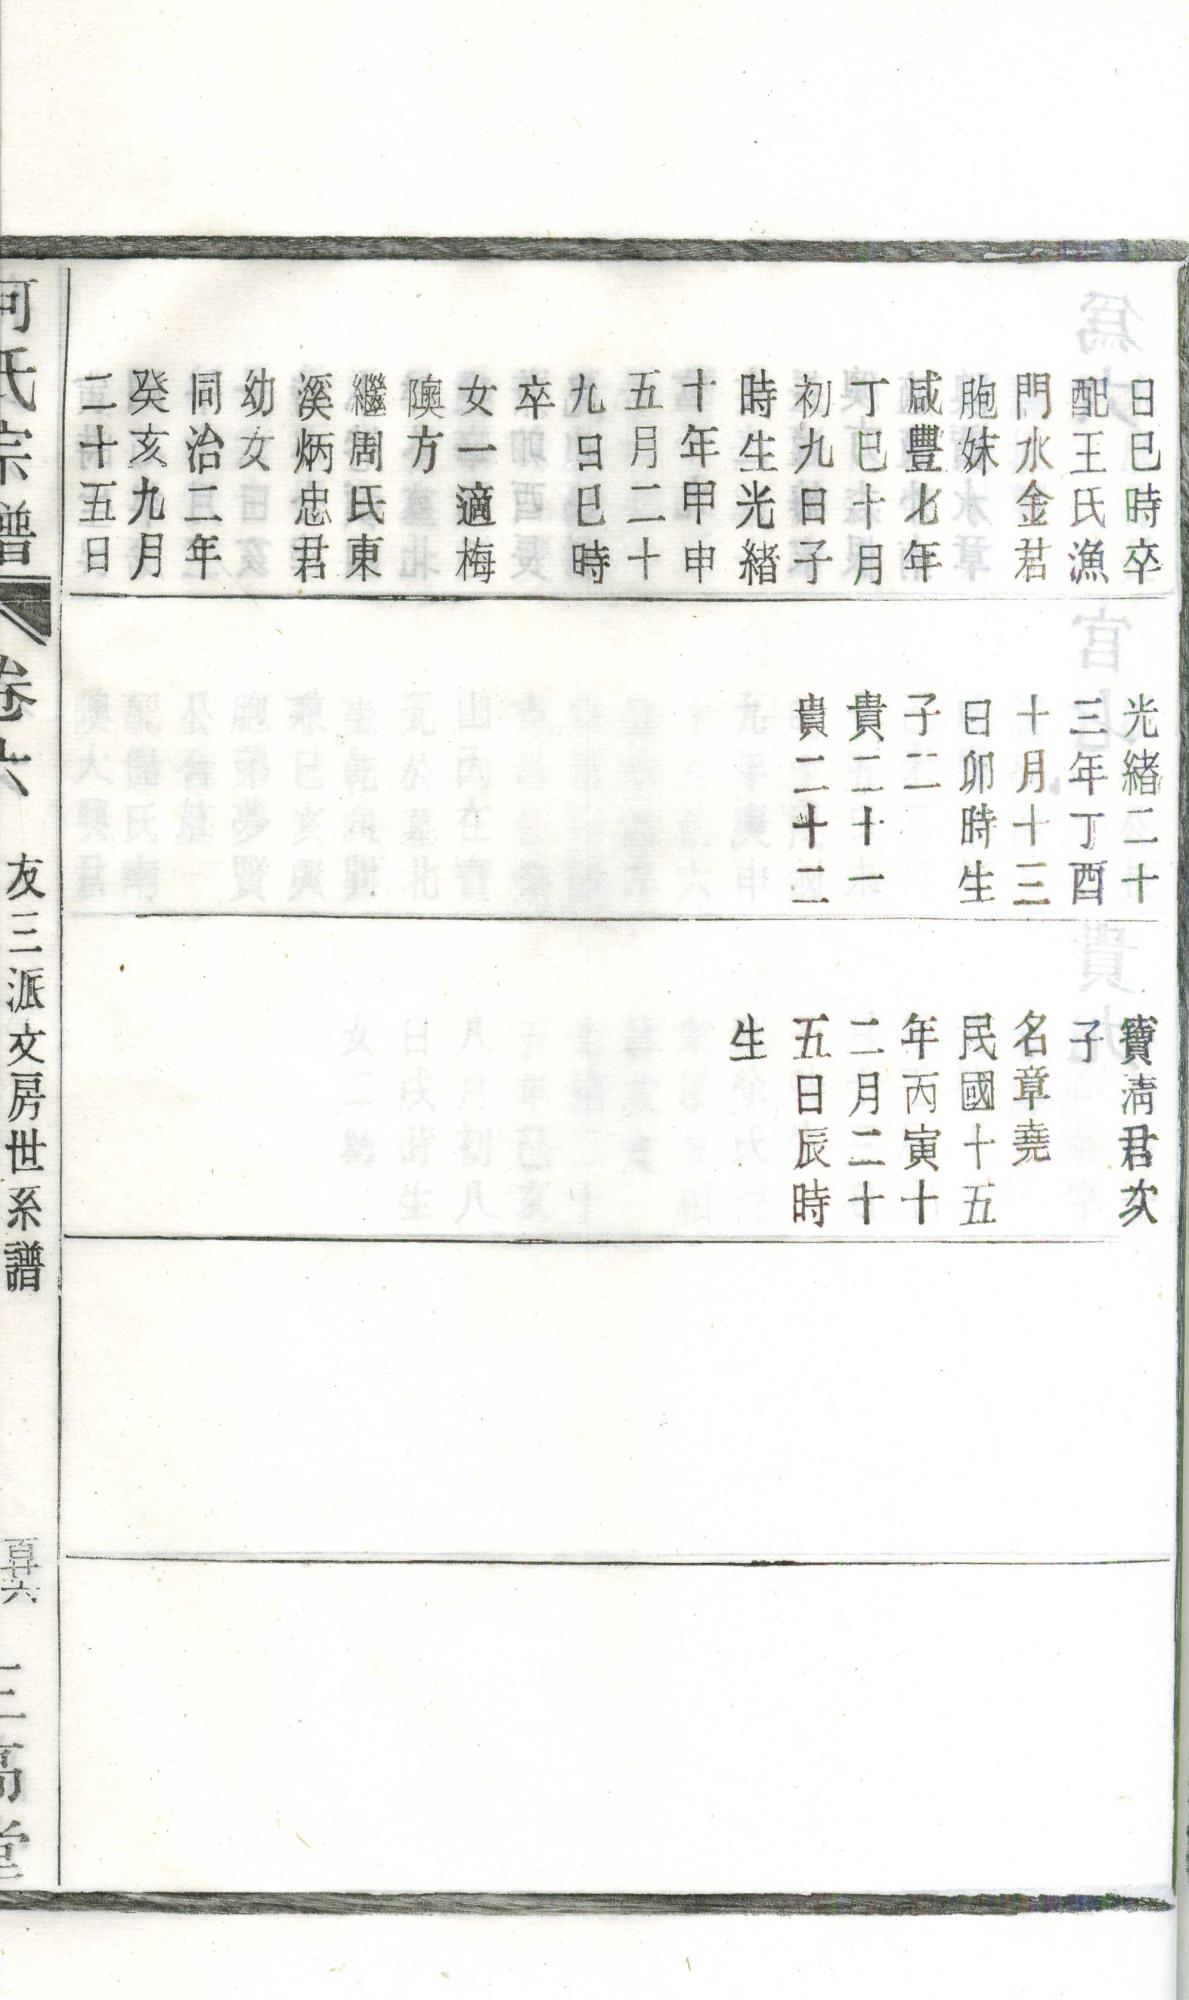 日巳時卒
配王氏漁
門水金君
胞妹
咸豐七年
丁巳十月
初九日子
時生光緒
十年甲申
五月二十
九日巳時
卒
女一適梅
隩方
繼周氏東
溪炳忠君
幼女
同治二年
癸亥九月
二十五日
光緒二十
三年丁酉
十月十三
日卯時生
子二
貴二十一
貴二十二
寶清君次
子
名章堯
民國十五
年丙寅十
二月二十
五日辰時
生
何氏宗譜
卷六
友三派文房世系譜
三高堂